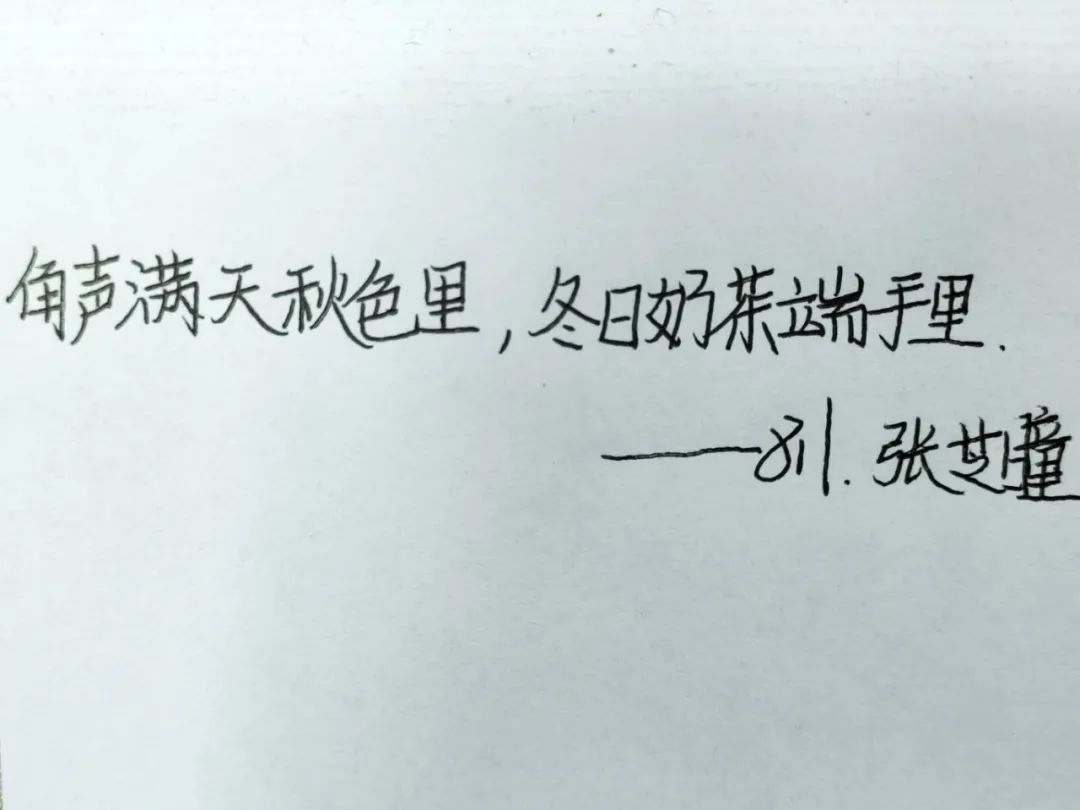 角声满天秋色里,冬日奶茶端手里.
——811.张芝瞳